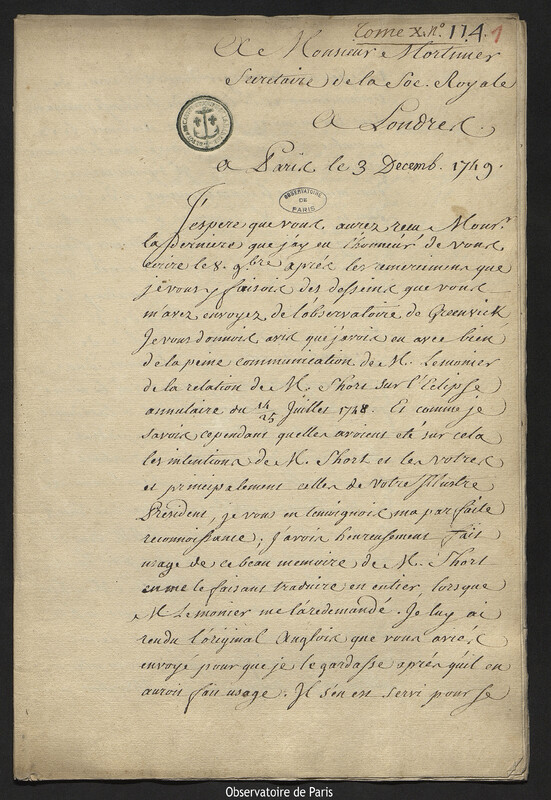 Tome X. n.° 114. 1
A Monsieur Mortimer
Secretaire de la Soc. Royale
A Londres.
a Paris le 3 Decemb. 1749.
OBSERVATOIRE
DE
PARIS
J'espere que vous aurez reçu Mons.r
la derniere que j'ay eu l'honneur de vous
ecrire le 8. 9.bre après les remercimens que
je vous y faisois des desseins que vous
m'avez envoyez de l'observatoire de Greenvick
Je vous donnois avis que j'avois eu avec bien
de la peine communication de M. Lemonier
de la relation de M. Short sur l'Eclipse
annulaire du 14/25 Juillet 1748. Et comme je
savois cependant quelles avoient eté sur cela
les intentions de M. Short et les votres
et principalement celles de votre Illustre
President, je vous en temoignois ma parfaite
reconnoissance; j'avois heureusement fait
usage de ce beau memoire de M. Short
en me le faisant traduire en entier, lorsque
M. Lemonier me l'a redemandé. Je luy ai
rendu l'original Anglois que vous aviés
envoyé pour que je le gardasse après qu'il en
auroit fait usage. Il s'en est servi pour se
Observatoire de Paris